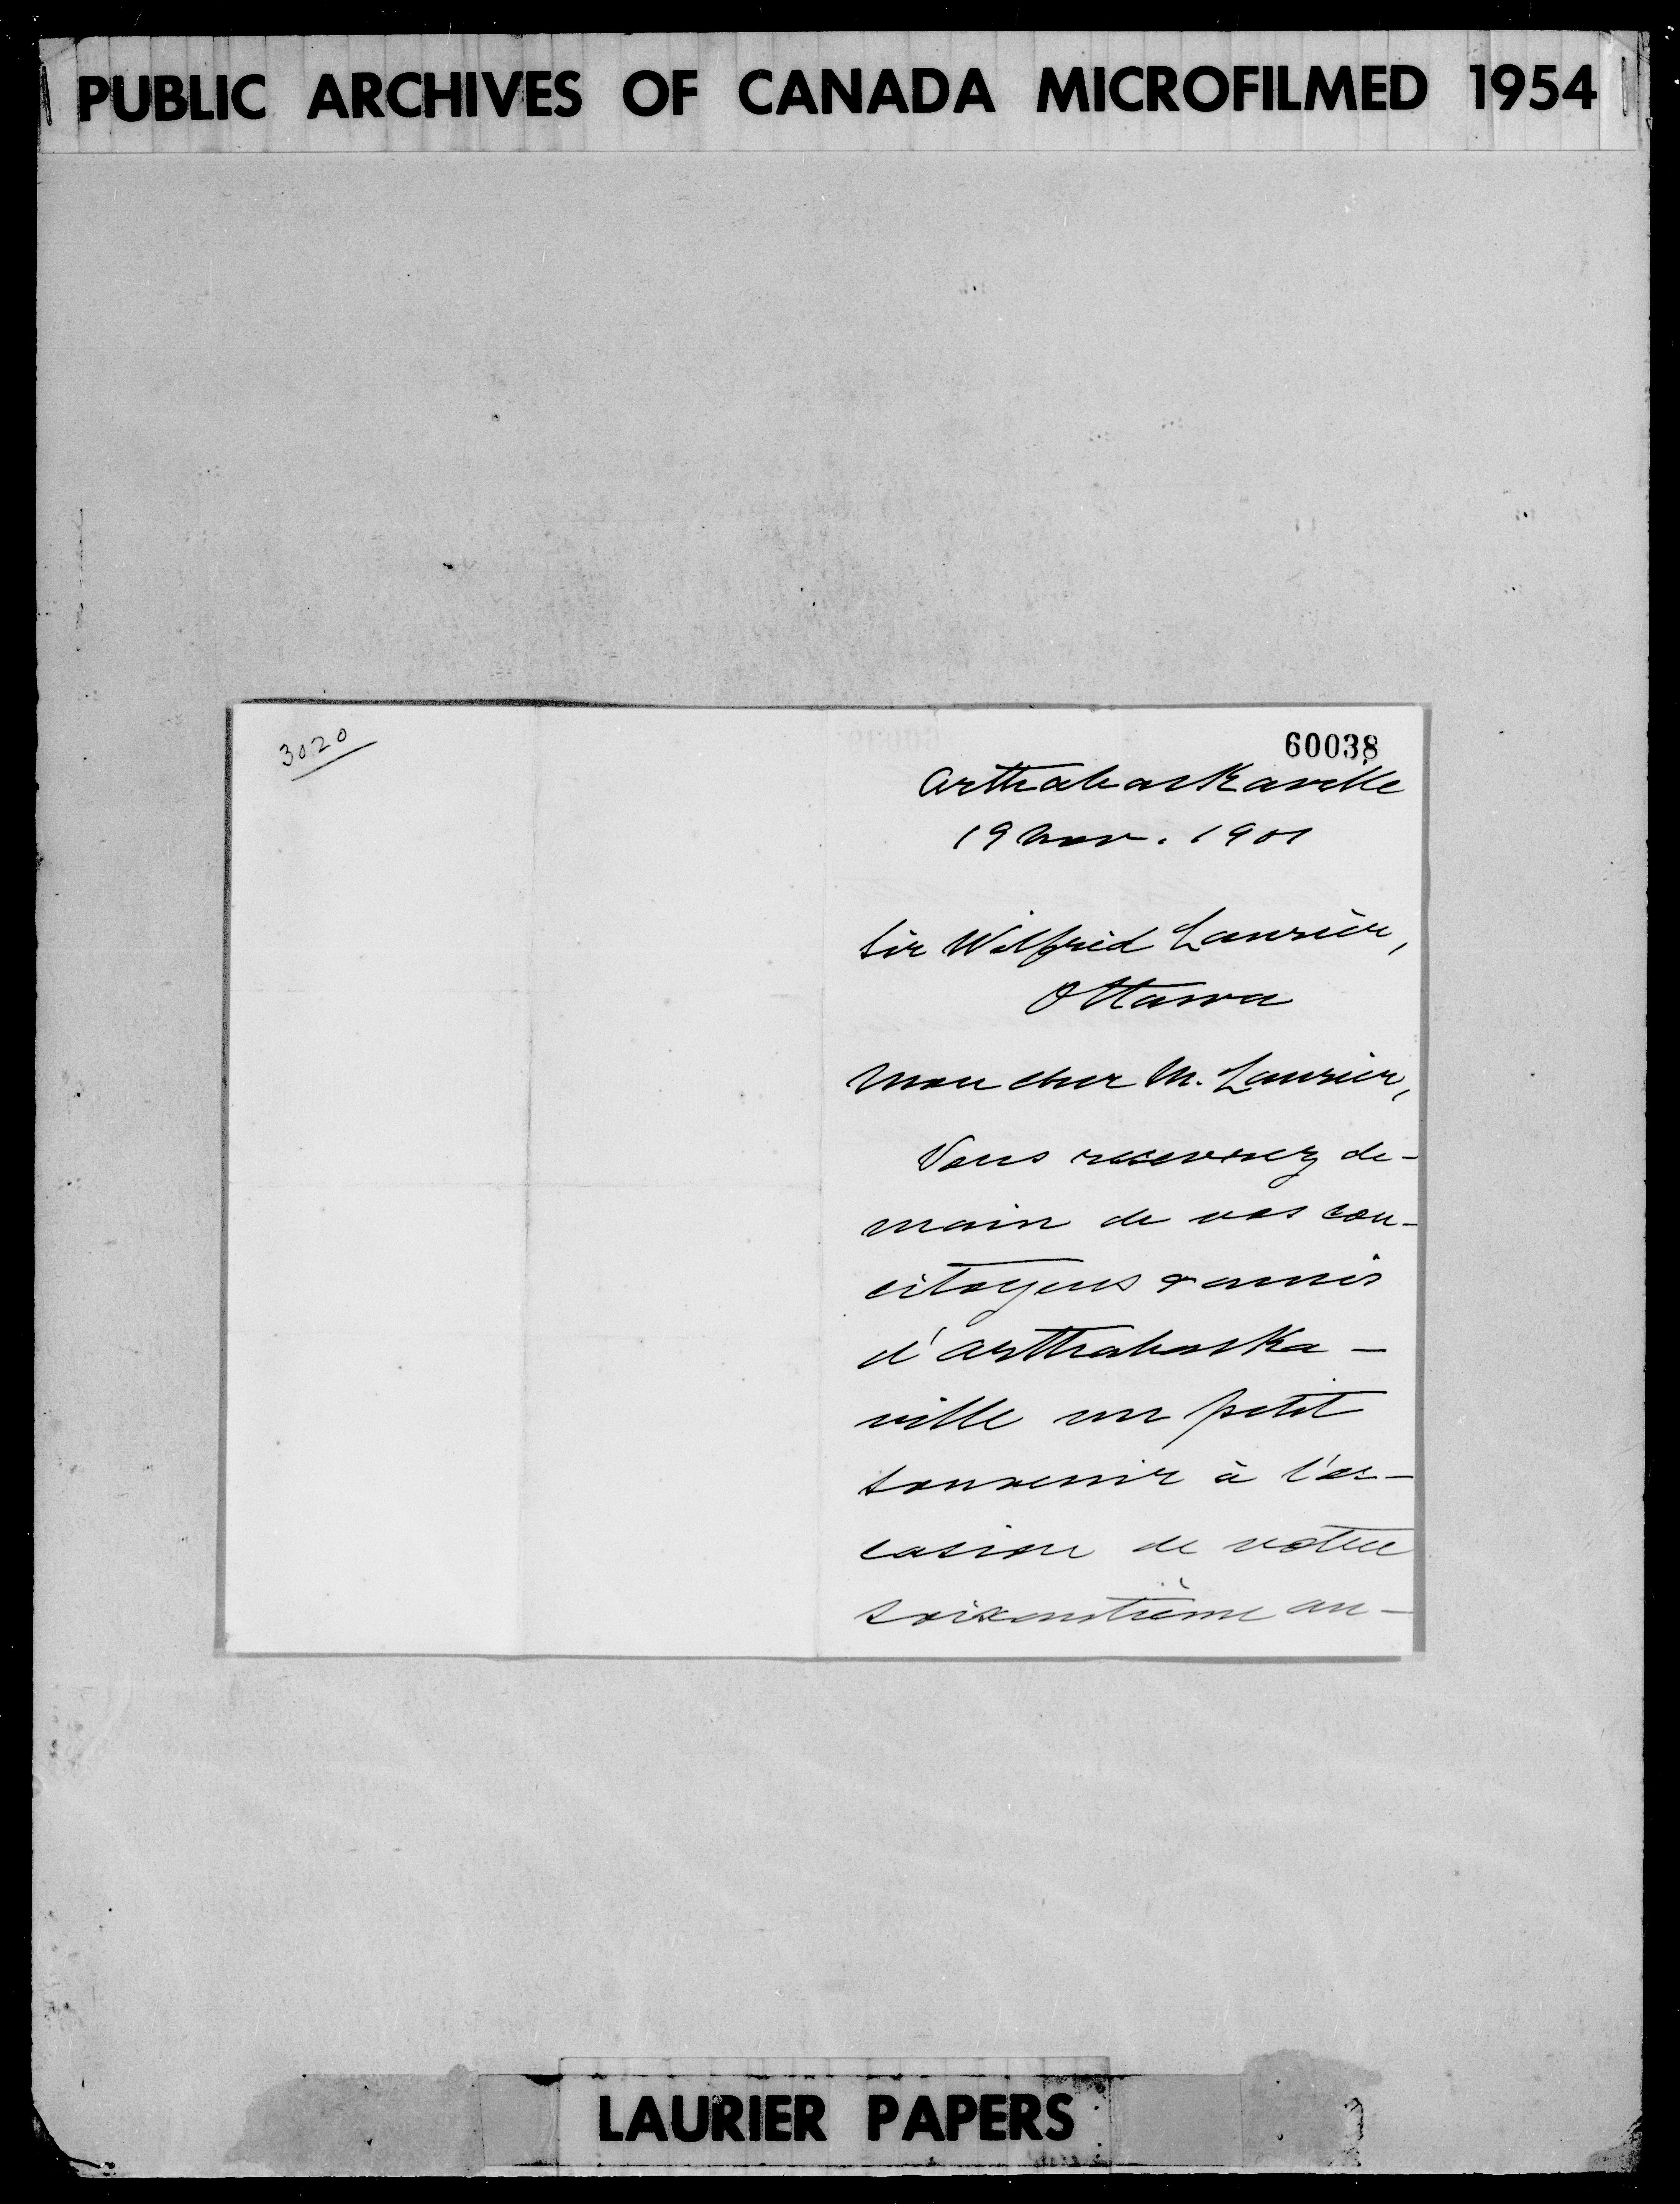 PUBLIC ARCHIVES OF CANADA MICROFILMED 1954
3020
60038
Arthabaskaville
19 Nov. 1901
Sir Wilfrid Laurier,
Ottawa
Mon cher M. Laurier,
Vous recevrez de-
main de vos con-
citoyens & amis
d'Arthabaska-
ville un petit
souvenir à l'oc-
casion de votre
soixantième an-
LAURIER PAPERS